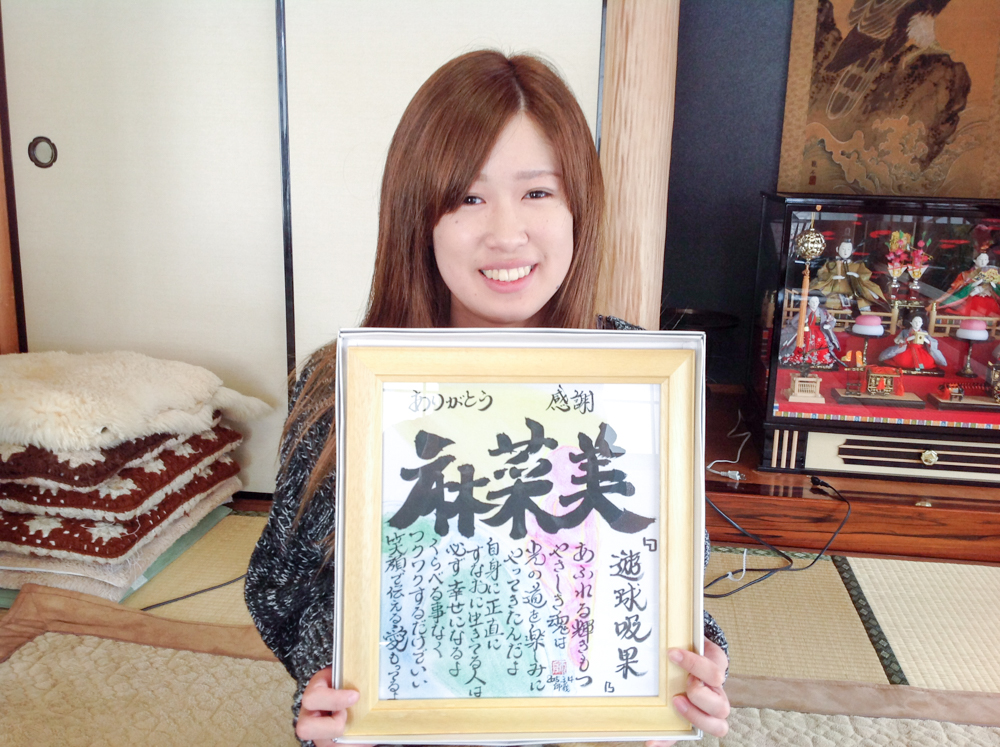 ありがとう 感謝
麻菜美
『球吸果』
あふれる輝きもつ
やさしき魂は
光の道を楽しみに
やってきたんだよ
自身に正直に
すなおに生きてる人は
必ず幸せになるよ
くらべる事なく
ワクワクするだけでいい
笑顔で伝える愛もってる